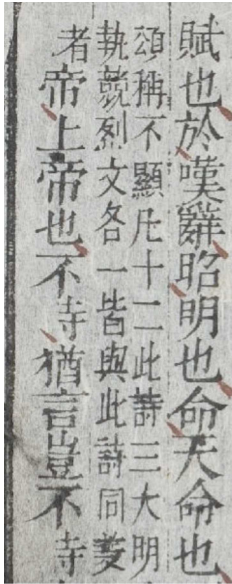 賦也於嘆辭昭明也命天命也
頌稱不顯凡十二此詩三大明
執競烈文各一皆與此詩同
者帝上帝也不寺猶言豈不寺